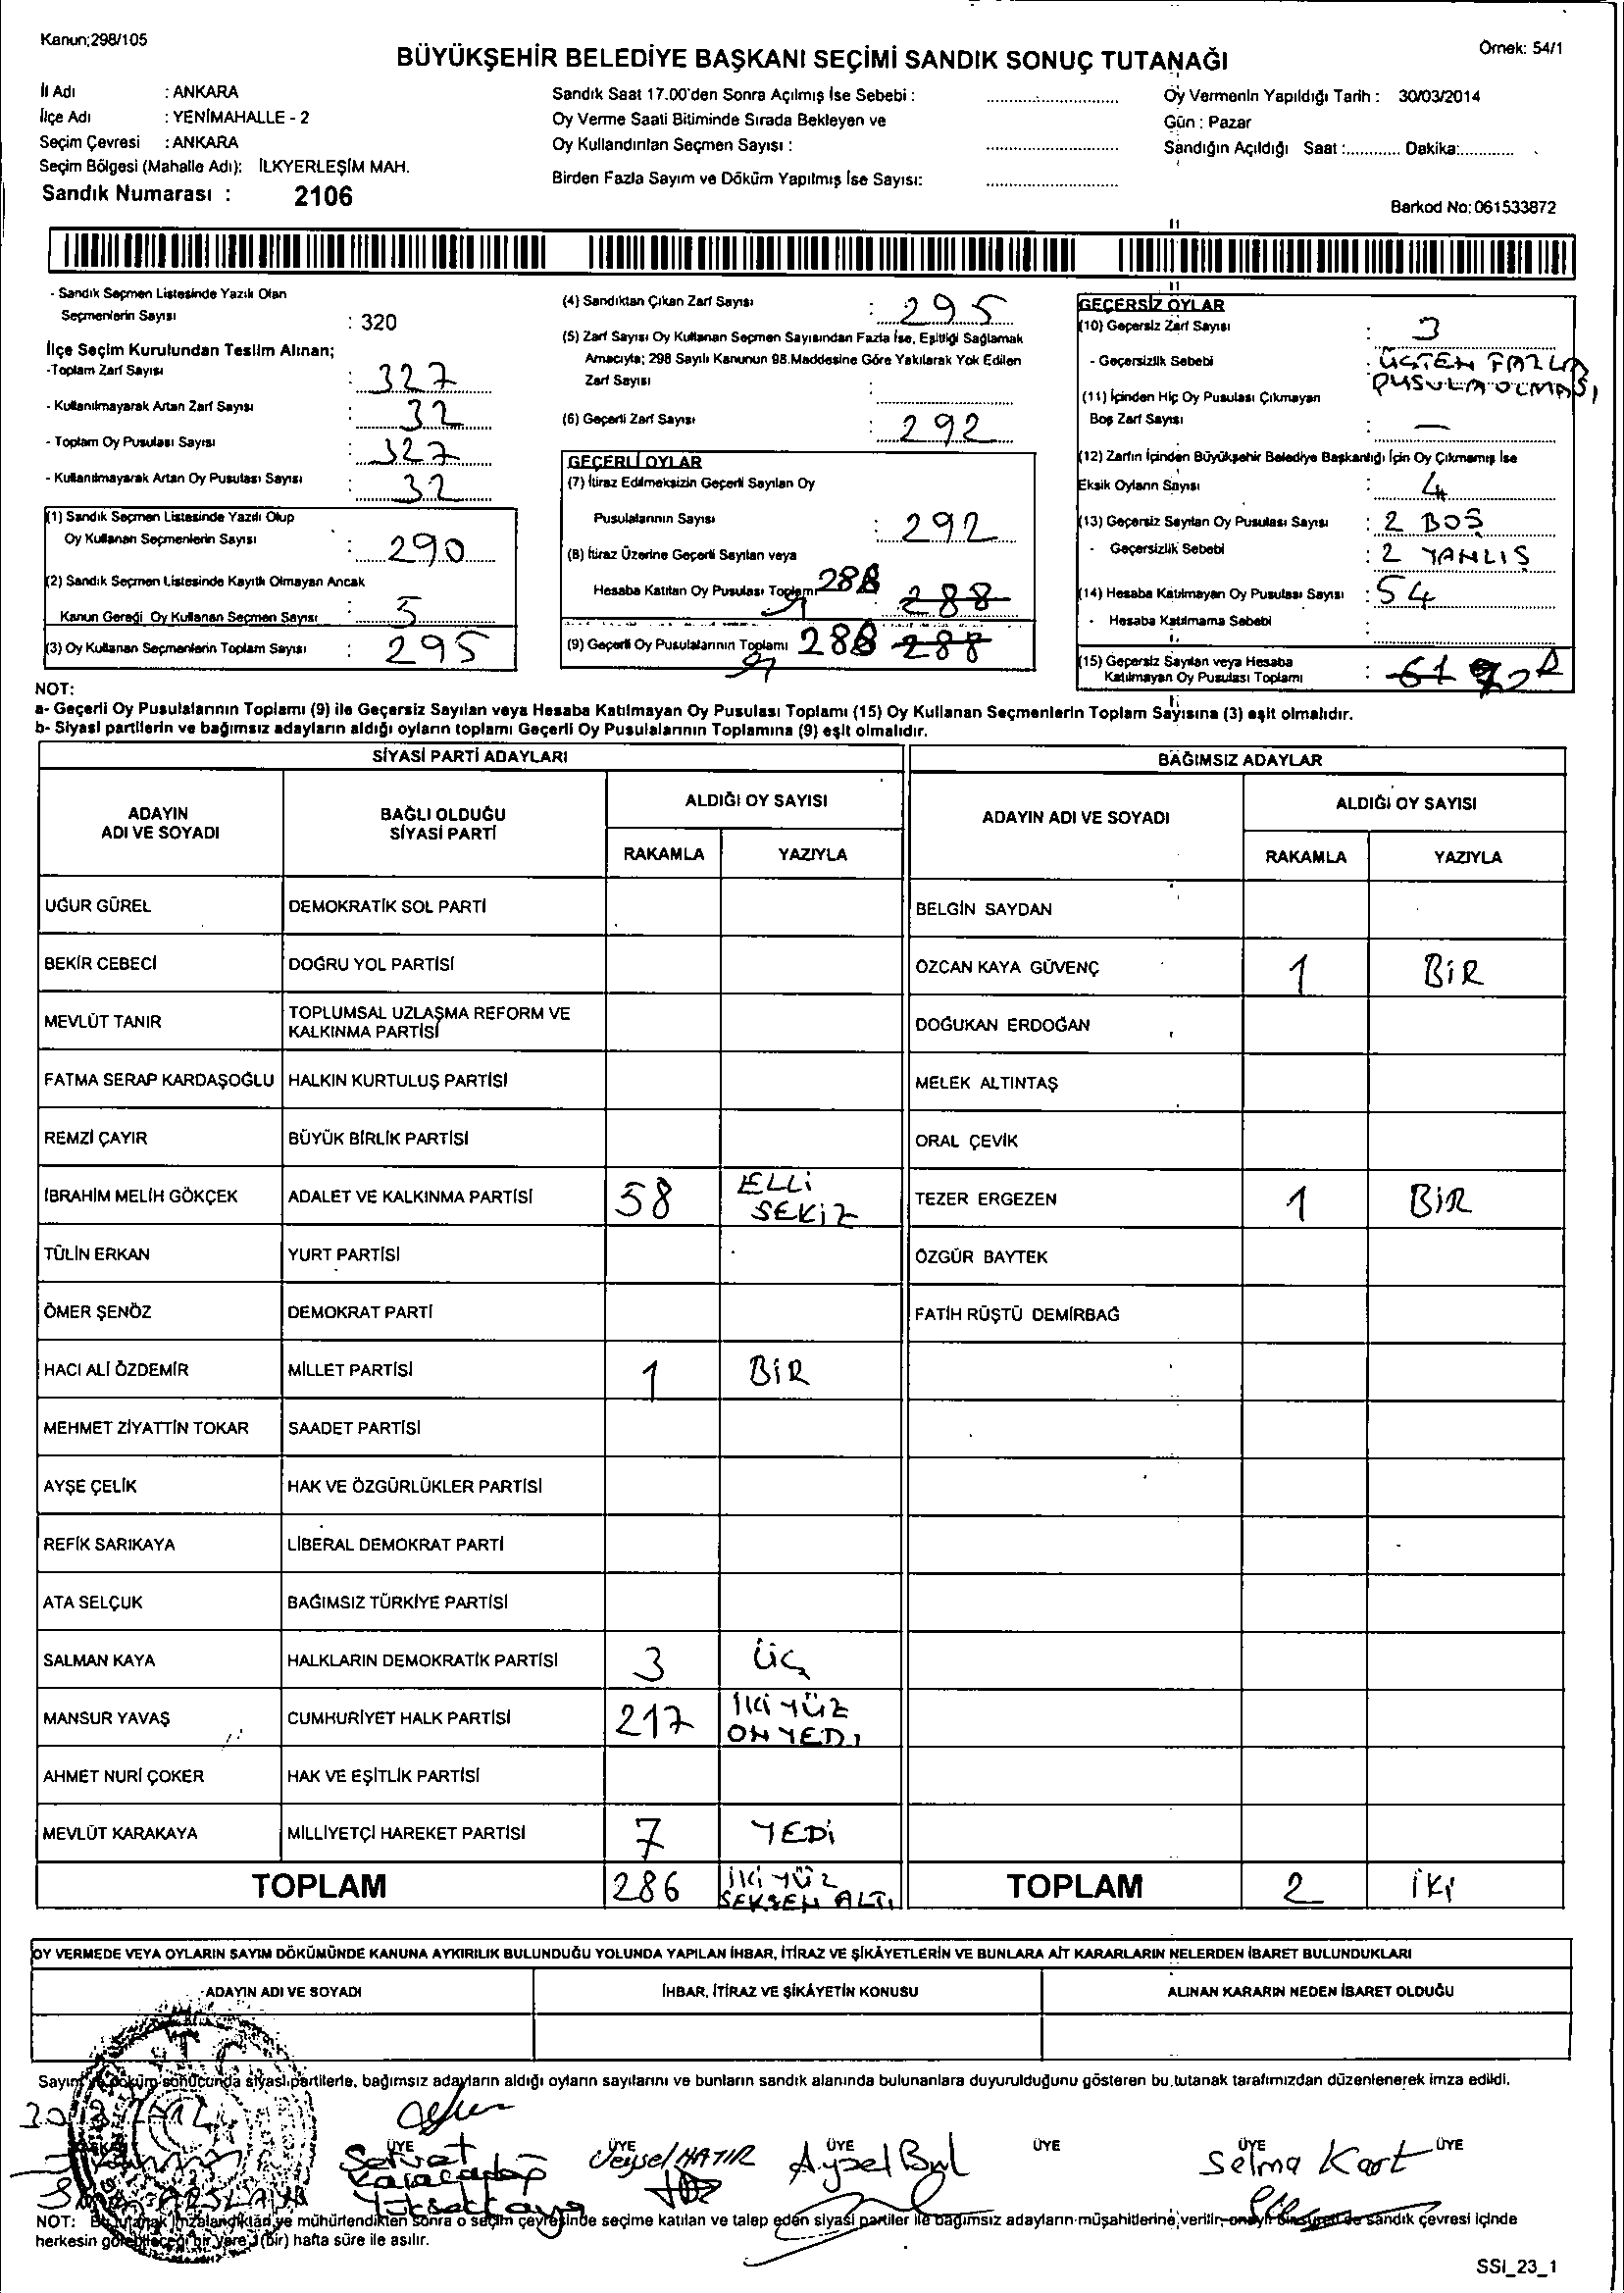 Kanun;298/105
Örnek: 54/1
BÜYÜKŞEHİR BELEDİYE BAŞKANI SEÇİMİ SANDIK SONUÇ TUTANAĞI
İl Adı : ANKARA
İlçe Adı : YENİMAHALLE - 2
Seçim Çevresi : ANKARA
Seçim Bölgesi (Mahalle Adı): İLKYERLEŞİM MAH.
Sandık Numarası : 2106
Sandık Saat 17.00'den Sonra Açılmış İse Sebebi :
Oy Verme Saati Bitiminde Sırada Bekleyen ve
Oy Kullandırılan Seçmen Sayısı :
Birden Fazla Sayım ve Döküm Yapılmış İse Sayısı:
Oy Vermenin Yapıldığı Tarih : 30/03/2014
Gün : Pazar
Sandığın Açıldığı Saat :............ Dakika:............
Barkod No: 061533872
- Sandık Seçmen Listesinde Yazılı Olan
Seçmenlerin Sayısı : 320
İlçe Seçim Kurulundan Teslim Alınan;
-Toplam Zarf Sayısı : 327
- Kullanılmayarak Artan Zarf Sayısı : 32
- Toplam Oy Pusulası Sayısı : 327
- Kullanılmayarak Artan Oy Pusulası Sayısı : 32
(1) Sandık Seçmen Listesinde Yazılı Olup
Oy Kullanan Seçmenlerin Sayısı : 290
(2) Sandık Seçmen Listesinde Kayıtlı Olmayan Ancak
Kanun Gereği Oy Kullanan Seçmen Sayısı : 5
(3) Oy Kullanan Seçmenlerin Toplam Sayısı : 295
(4) Sandıktan Çıkan Zarf Sayısı : 295
(5) Zarf Sayısı Oy Kullanan Seçmen Sayısından Fazla İse, Eşitliği Sağlamak
Amacıyla; 298 Sayılı Kanunun 98.Maddesine Göre Yakılarak Yok Edilen
Zarf Sayısı :
(6) Geçerli Zarf Sayısı : 292
GEÇERLİ OYLAR
(7) İtiraz Edilmeksizin Geçerli Sayılan Oy
Pusulalarının Sayısı : 292
(8) İtiraz Üzerine Geçerli Sayılan veya
Hesaba Katılan Oy Pusulası Toplamı 288 288
(9) Geçerli Oy Pusulalarının Toplamı 288 288
GEÇERSİZ OYLAR
(10) Geçersiz Zarf Sayısı : 3
- Geçersizlik Sebebi : ÜÇTEN FAZLA
PUSULA OLMASI
(11) İçinden Hiç Oy Pusulası Çıkmayan
Boş Zarf Sayısı : —
(12) Zarfın İçinden Büyükşehir Belediye Başkanlığı İçin Oy Çıkmamış İse
Eksik Oyların Sayısı : 4
(13) Geçersiz Sayılan Oy Pusulası Sayısı : 2 BOŞ
- Geçersizlik Sebebi : 2 YANLIŞ
(14) Hesaba Katılmayan Oy Pusulası Sayısı : 54
- Hesaba Katılmama Sebebi :
(15) Geçersiz Sayılan veya Hesaba
Katılmayan Oy Pusulası Toplamı : 61
NOT:
a- Geçerli Oy Pusulalarının Toplamı (9) ile Geçersiz Sayılan veya Hesaba Katılmayan Oy Pusulası Toplamı (15) Oy Kullanan Seçmenlerin Toplam Sayısına (3) eşit olmalıdır.
b- Siyasi partilerin ve bağımsız adayların aldığı oyların toplamı Geçerli Oy Pusulalarının Toplamına (9) eşit olmalıdır.
SİYASİ PARTİ ADAYLARI
BAĞIMSIZ ADAYLAR
ADAYIN
ADI VE SOYADI
BAĞLI OLDUĞU
SİYASİ PARTİ
ALDIĞI OY SAYISI
RAKAMLA YAZIYLA
ADAYIN ADI VE SOYADI
ALDIĞI OY SAYISI
RAKAMLA YAZIYLA
UĞUR GÜREL DEMOKRATİK SOL PARTİ BELGİN SAYDAN
BEKİR CEBECİ DOĞRU YOL PARTİSİ ÖZCAN KAYA GÜVENÇ 1 BİR
MEVLÜT TANIR TOPLUMSAL UZLAŞMA REFORM VE
KALKINMA PARTİSİ DOĞUKAN ERDOĞAN
FATMA SERAP KARDAŞOĞLU HALKIN KURTULUŞ PARTİSİ MELEK ALTINTAŞ
REMZİ ÇAYIR BÜYÜK BİRLİK PARTİSİ ORAL ÇEVİK
İBRAHİM MELİH GÖKÇEK ADALET VE KALKINMA PARTİSİ 58 ELLİ
SEKİZ TEZER ERGEZEN 1 BİR
TÜLİN ERKAN YURT PARTİSİ ÖZGÜR BAYTEK
ÖMER ŞENÖZ DEMOKRAT PARTİ FATİH RÜŞTÜ DEMİRBAĞ
HACI ALİ ÖZDEMİR MİLLET PARTİSİ 1 BİR
MEHMET ZİYATTİN TOKAR SAADET PARTİSİ
AYŞE ÇELİK HAK VE ÖZGÜRLÜKLER PARTİSİ
REFİK SARIKAYA LİBERAL DEMOKRAT PARTİ
ATA SELÇUK BAĞIMSIZ TÜRKİYE PARTİSİ
SALMAN KAYA HALKLARIN DEMOKRATİK PARTİSİ 3 ÜÇ
MANSUR YAVAŞ CUMHURİYET HALK PARTİSİ 217 İKİ YÜZ
ONYEDİ
AHMET NURİ ÇOKER HAK VE EŞİTLİK PARTİSİ
MEVLÜT KARAKAYA MİLLİYETÇİ HAREKET PARTİSİ 7 YEDİ
TOPLAM 286 İKİ YÜZ
SEKSEN ALTI TOPLAM 2 İKİ
OY VERMEDE VEYA OYLARIN SAYIM DÖKÜMÜNDE KANUNA AYKIRILIK BULUNDUĞU YOLUNDA YAPILAN İHBAR, İTİRAZ VE ŞİKÂYETLERİN VE BUNLARA AİT KARARLARIN NELERDEN İBARET BULUNDUKLARI
ADAYIN ADI VE SOYADI İHBAR, İTİRAZ VE ŞİKÂYETİN KONUSU ALINAN KARARIN NEDEN İBARET OLDUĞU
Sayım ve döküm sonucunda siyasi partilerle, bağımsız adayların aldığı oyların sayılarını ve bunların sandık alanında bulunanlara duyurulduğunu gösteren bu tutanak tarafımızdan düzenlenerek imza edildi.
ÜYE ÜYE ÜYE ÜYE ÜYE ÜYE
Veysel HATIR Aysel Selma Kart
NOT: Bu tutanak imzalandıktan ve mühürlendikten sonra o seçim çevresinde seçime katılan ve talep eden siyasi partiler ile bağımsız adayların müşahitlerine verilir, sandık çevresi içinde
herkesin görebileceği bir yere 1 (bir) hafta süre ile asılır.
SSI_23_1